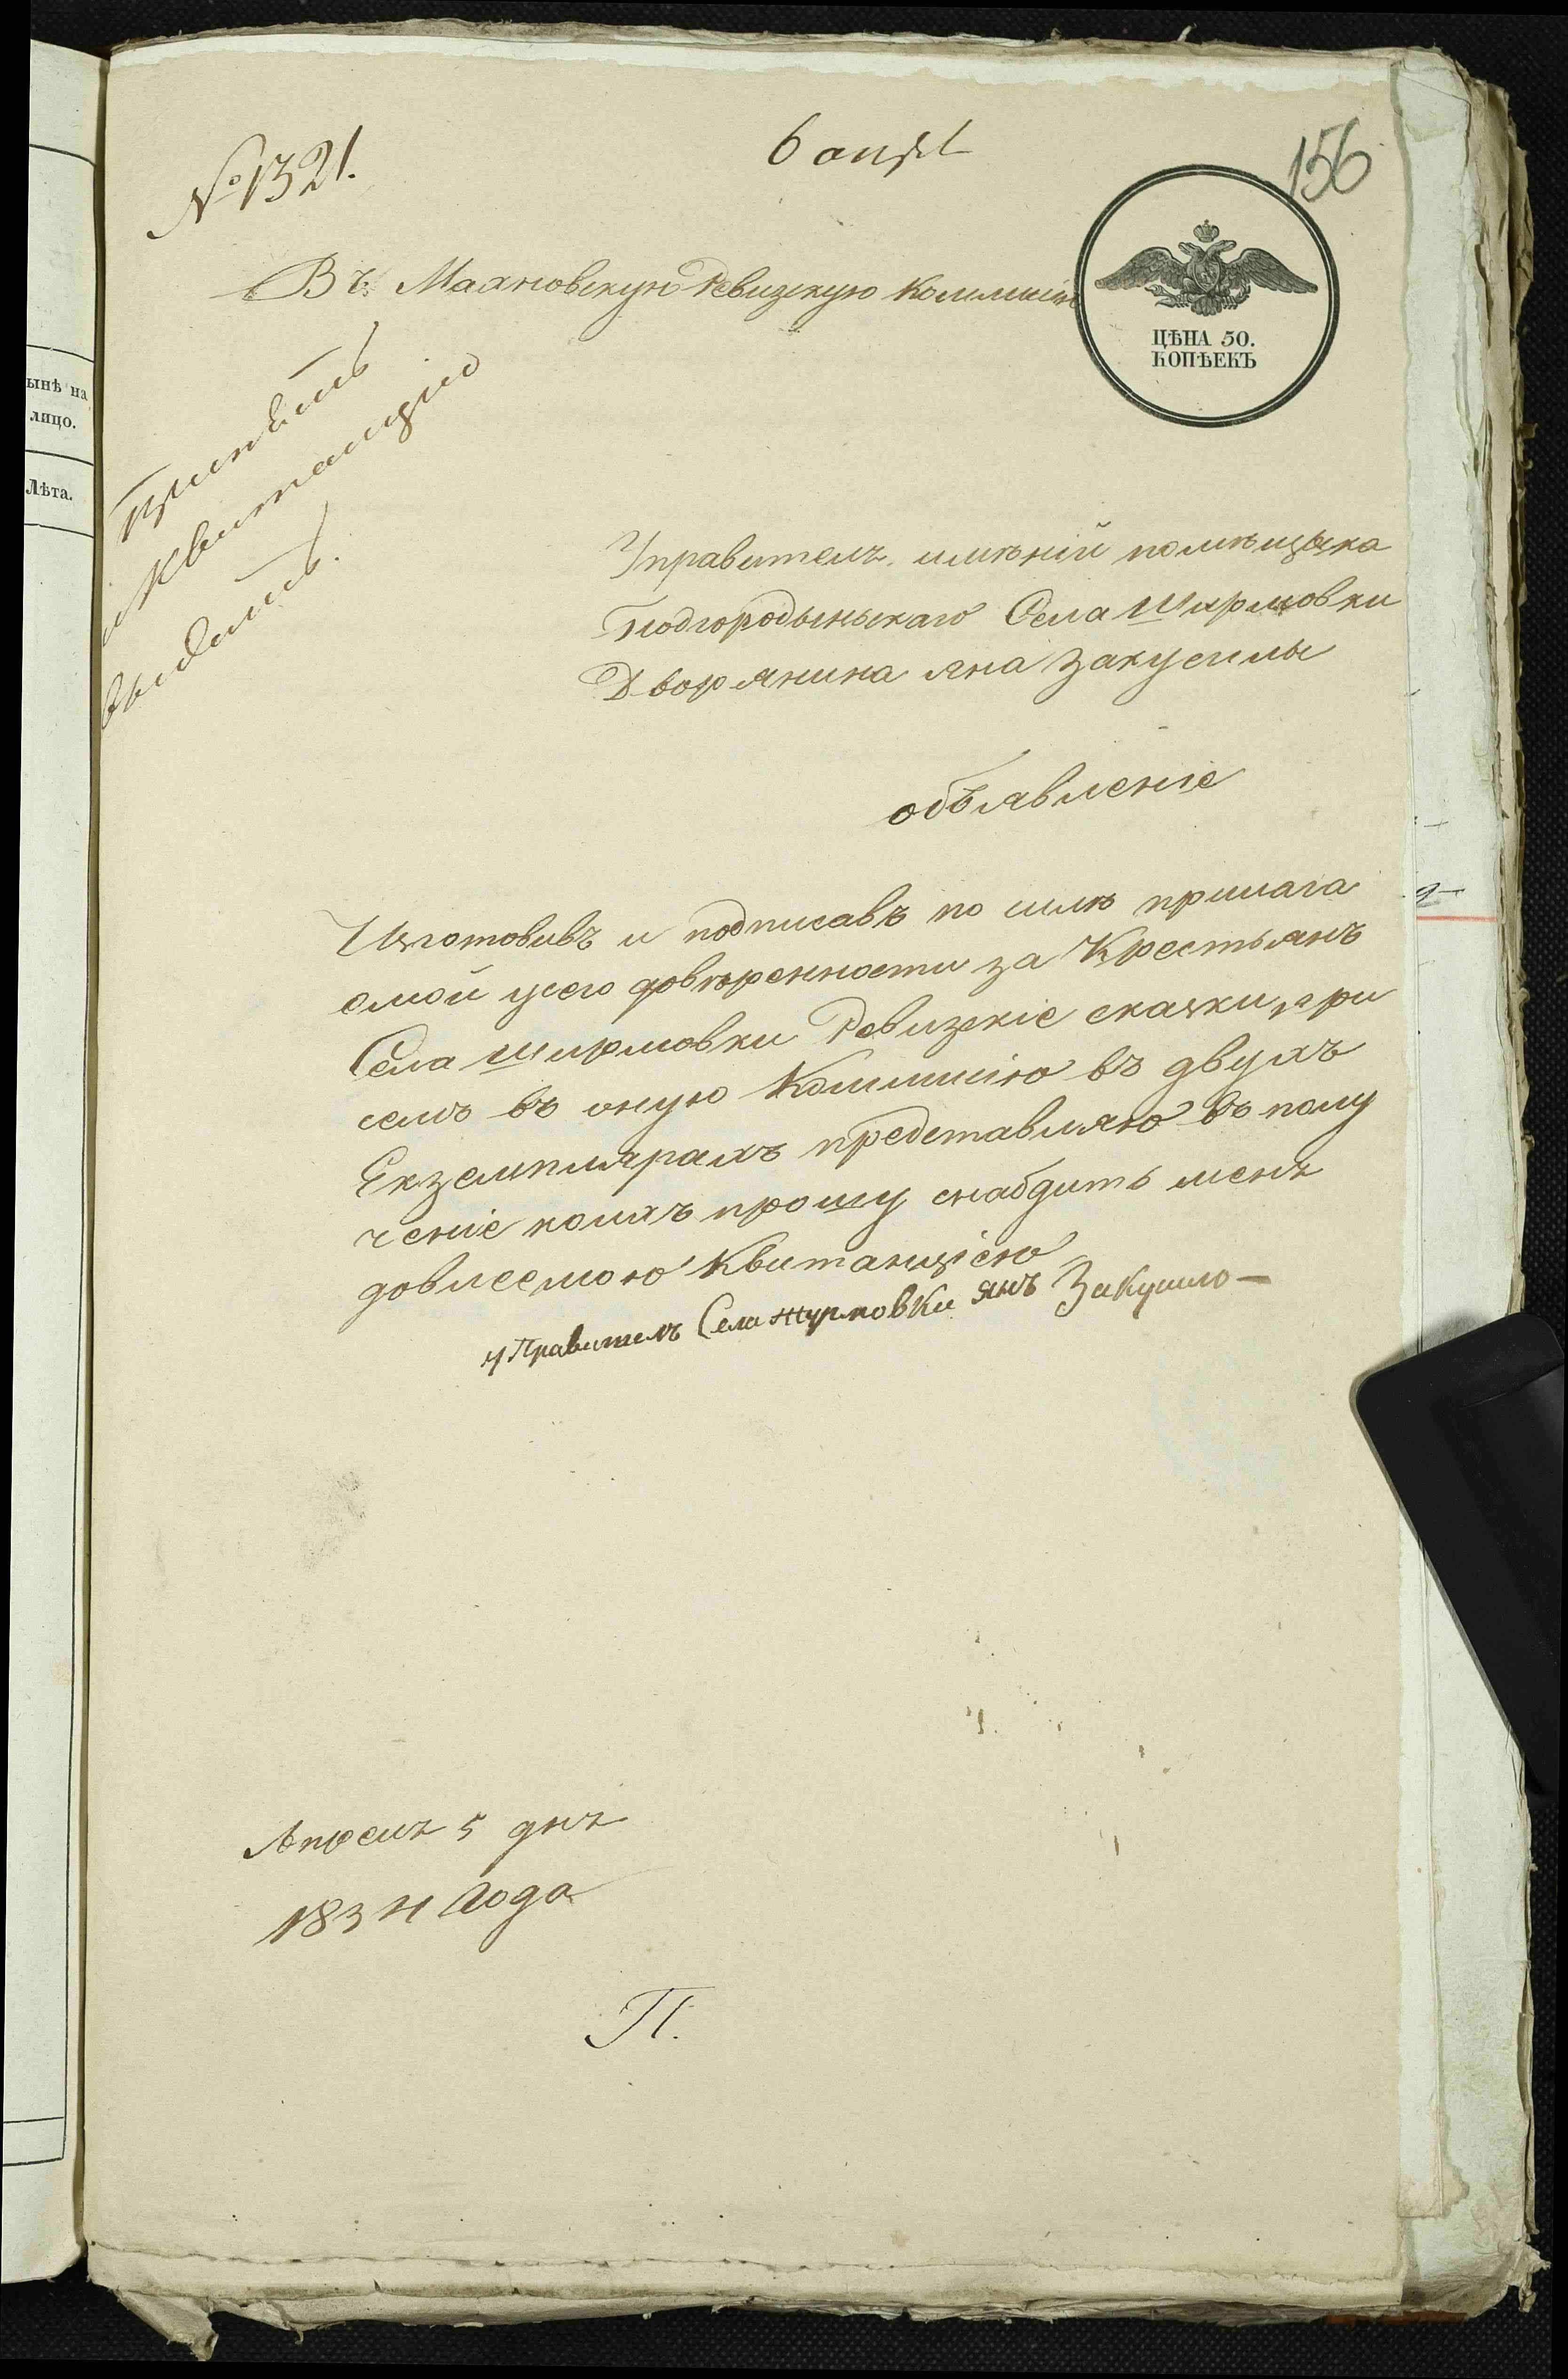 6 апрѣл
156
№ 1321.
Въ Махновскую Ревизскую Коммисію
ЦѢНА 50.
КОПѢЕКЪ
Принять
и квитанцію
выдать.
ынѣ на
лицо.
Лѣта.
Управителъ имѣній помѣщыка
Подгородынскаго Села Ширмовки
Дворянина яна Закусилы
объявленіе
Изготовивъ и подписавъ по силѣ прилага
емой усего довѣренности за Крестьянъ
Села Ширмовки Ревизскіе сказки, при
семъ въ оную Коммисію въ двухъ
Екземплярахъ представляю въ полу
ченіе коихъ прошу снабдить менѣ
довлеемою Квитанціею
управителъ Села Шурмовки янъ Закусило —
Апреля 5 дня
1834 Года
П.